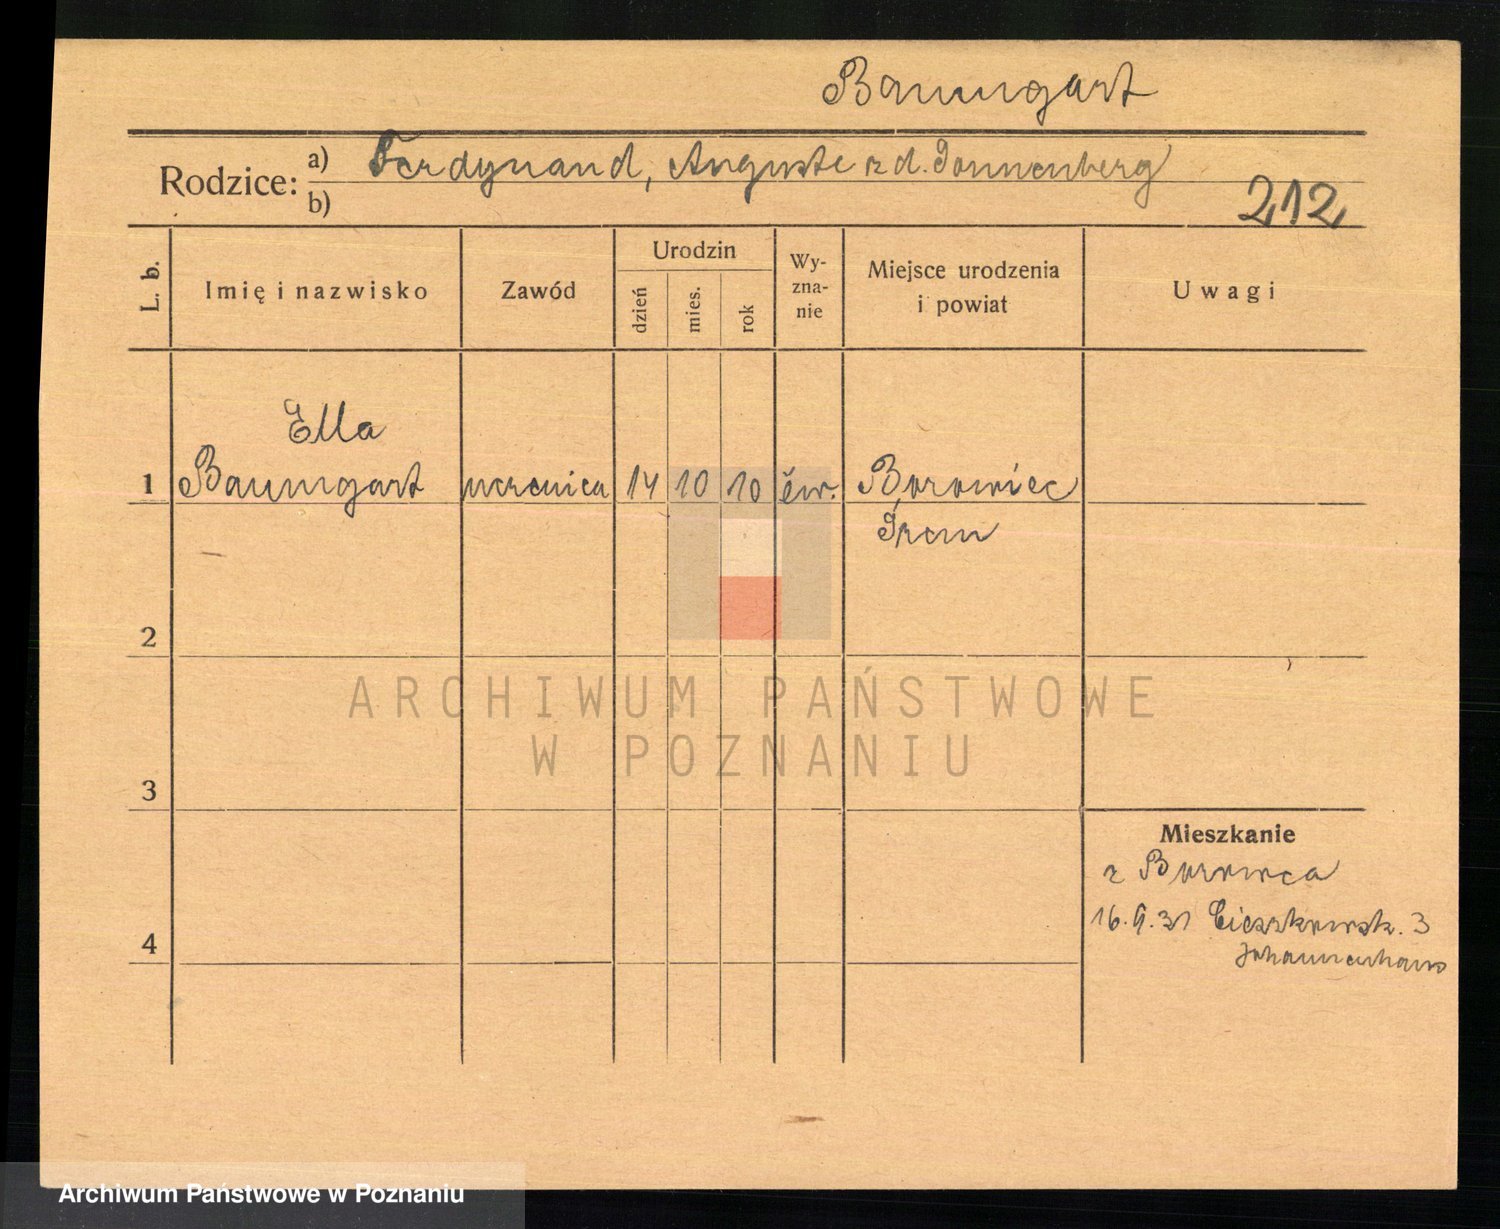 Baumgart
Rodzice: a) Ferdynand, Auguste z d. Sonnenberg
b)
212
L. b.
Imię i nazwisko
Zawód
Urodzin
dzień
mies.
rok
Wy-
zna-
nie
Miejsce urodzenia
i powiat
Uwagi
Ella
1 Baumgart uczenica 14 10 10 ew. Borowiec
Śrem
2
ARCHIWUM PAŃSTWOWE
W POZNANIU
3
Mieszkanie
z Borowca
16.9.31 Cieszkowsk. 3
Johannenhaus
4
Archiwum Państwowe w Poznaniu